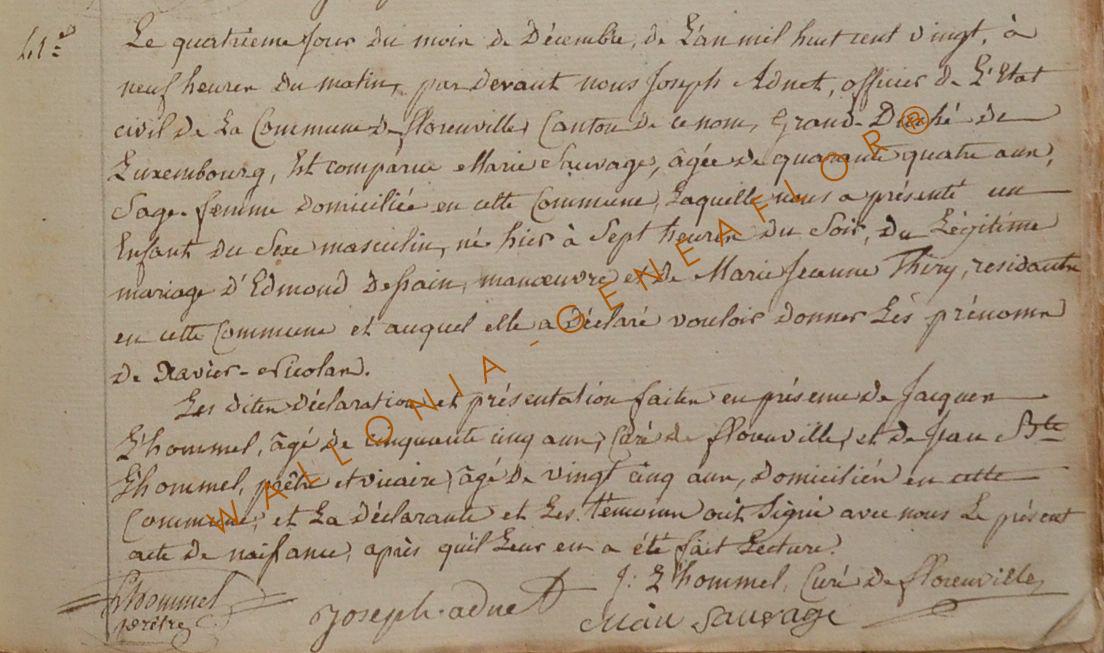 41.e
Le quatrieme Jour du mois de Décembre, de L'an mil huit cent vingt, à
neuf heures du matin, par devant nous Joseph Adnet, officier de L'Etat
civil de La Commune de florenville, Canton de ce nom, Grand-Duché de
Luxembourg, Est comparue Marie Sauvage, âgée de quarante quatre ans,
Sage-femme domiciliée en cette Commune, Laquelle nous a présenté un
Enfant du Sexe masculin, né hier à Sept heures du Soir, du Légitime
mariage d'Edmond Dessain, manœuvre et de Marie Jeanne Thiry, residants
en cette Commune et auquel elle a déclaré vouloir donner Les prénoms
de Xavier-Nicolas.
Les dites déclaration et présentation faites en présence de Jacques
L'hommel, âgé de cinquante cinq ans, Curé de florenville, et de Jean Bte
Lhommel, prêtre et vicaire, âgé de vingt cinq ans, domiciliés en cette
Commune, et La déclarante et Les témoins ont Signé avec nous Le présent
acte de naissance, après qu'il Leur en a été fait Lecture.
Lhommel
prêtre
Joseph adnet
J: L'hommel, Curé de florenville
Marie Sauvage
WALLONIA - GENEAFLOR®